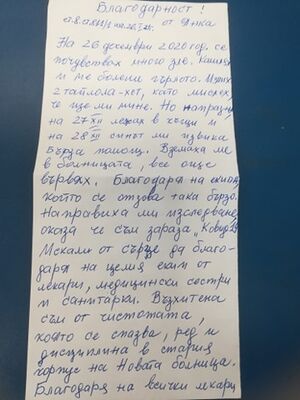 Благодарност!
от Джка
На 26 десември 2020 год. се
почувствах много зле. Кашлях
и ме болеше гърлото. Изпих
2 таблола-хот, като мислех
че ще ми мине. Но напразно
на 27 XII лежах в къщи и
на 28 XII синът ми извика
Бърза помощ. Вземаха ме
в болницата, все още
вървях. Благодаря на екипа,
който се отзова така бързо.
Направиха ми изследване,
оказа че съм зараза „Ковид“
Искали от сърце да благо-
даря на целия екип от
лекари, медицински сестри
и санитарки. Възхитена
съм от чистотата,
която се спазва, ред и
дисциплина в стария
корпус на Новата болница.
Благодаря на всички лекари